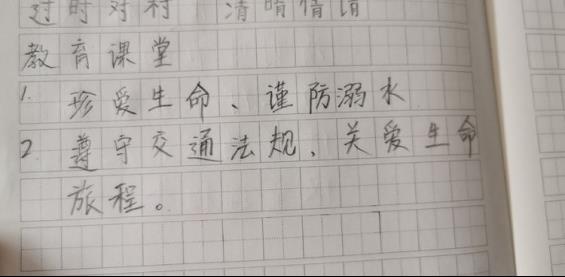 过时对村 清晴情请
教育课堂
1. 珍爱生命、谨防溺水
2. 遵守交通法规、关爱生命
旅程。